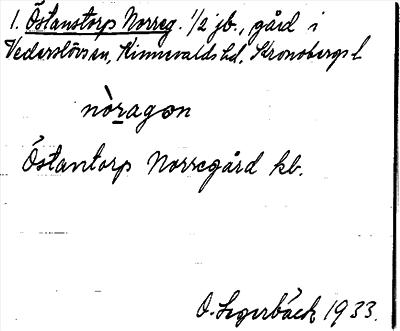 1. Östanstorp Norreg. 1/2 jb., gård i
Vederslövs sn, Kinnevalds hd, Kronobergs l
nòragɔn
Östantorp Norregård kb.
O. Segerbäck 1933.